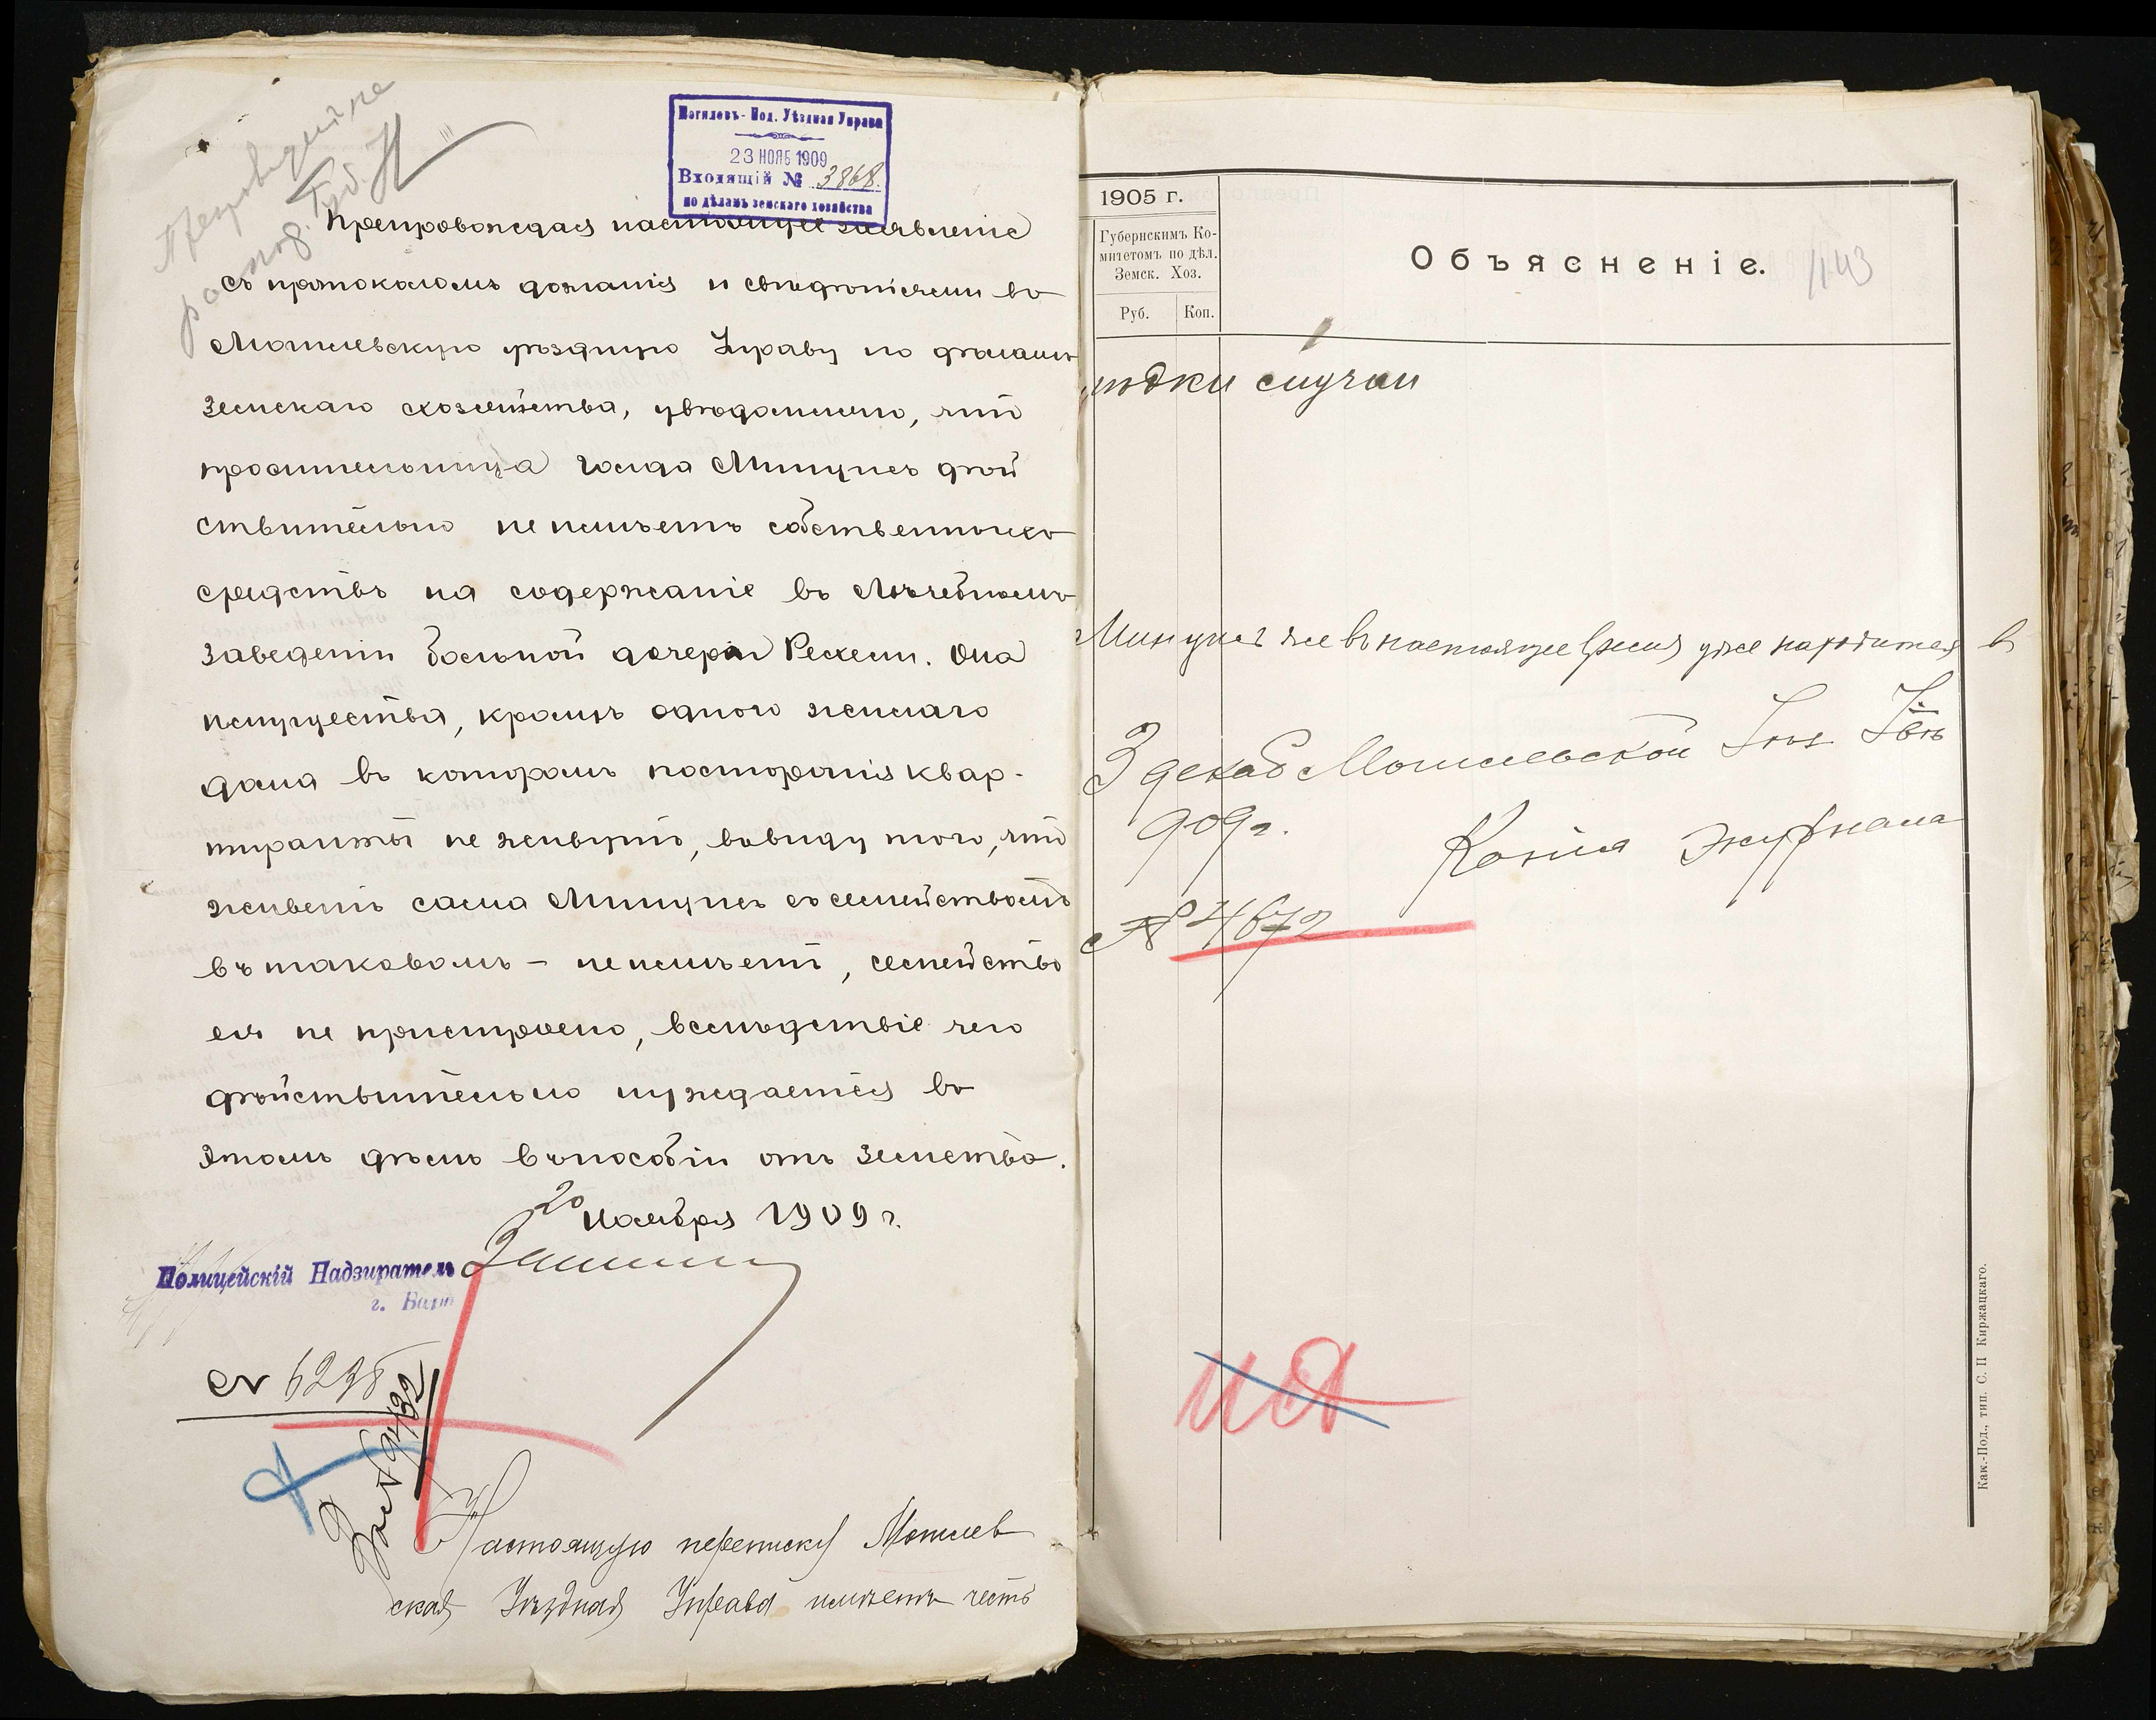 Могилевъ-Под. Уѣздная Управа
23 НОЯБ 1909
Входящій № 3868.
по дѣламъ земскаго хозяйства
Препровождая настоящее заявленіе
съ протоколомъ дознанія и свѣдѣніями въ
Могилевскую уѣздную Управу по дѣламъ
земскаго хозяйства, увѣдомляю, что
просительница Голда Минцисъ дѣй
ствительно не имѣетъ собственныхъ
средствъ на содержаніе въ лѣчебномъ
заведеніи больной дочери Рехели. Она
имущества, кромѣ одного жилаго
дома въ которомъ посторонніе квар-
тиранты не живутъ, ввиду того, что
живетъ сама Минцисъ съ семействомъ
въ таковомъ - не имѣетъ, семейство
ея не пристроено, вслѣдствіе чего
дѣйствительно нуждается въ
этомъ дѣлѣ въ пособіи отъ земства.
20 Ноября 1909 г.
Полицейскій Надзиратель
г.
№ 6238
Настоящую переписку Могилев
ская Уѣздная Управа имѣетъ честь
1905 г.
Губернскимъ Ко-
митетомъ по дѣл.
Земск. Хоз.
Руб. Коп.
Объясненіе.
случаи
же въ настоящее время уже находится в
3 декаб Могилевской
909 г.
Копія журнала
№ 4672
Каж.-Под., тип. С. П Киржацкаго.